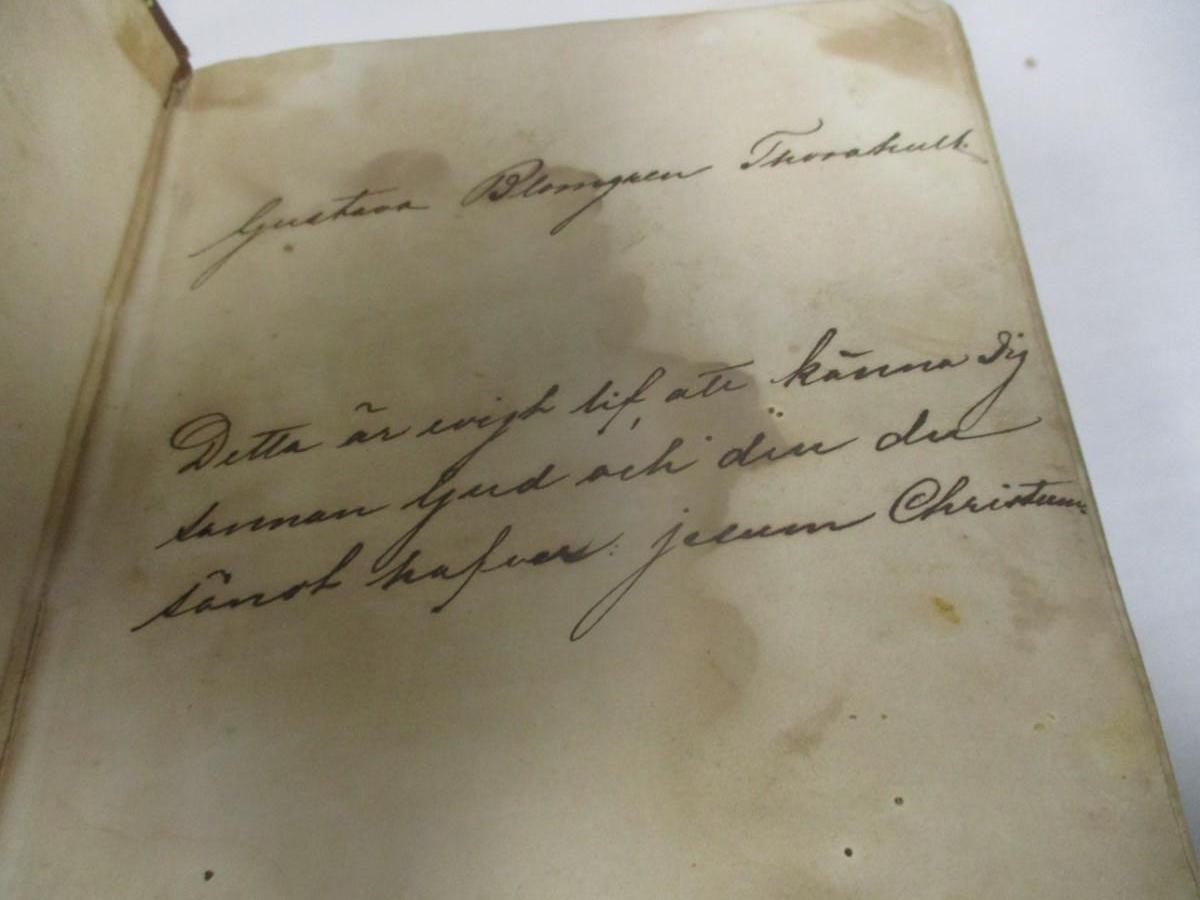 Gustava Blomgren Thorahult.
Detta är evigt lif, att känna Dig
sannan Gud och den du
sändt hafver: jesum Christum